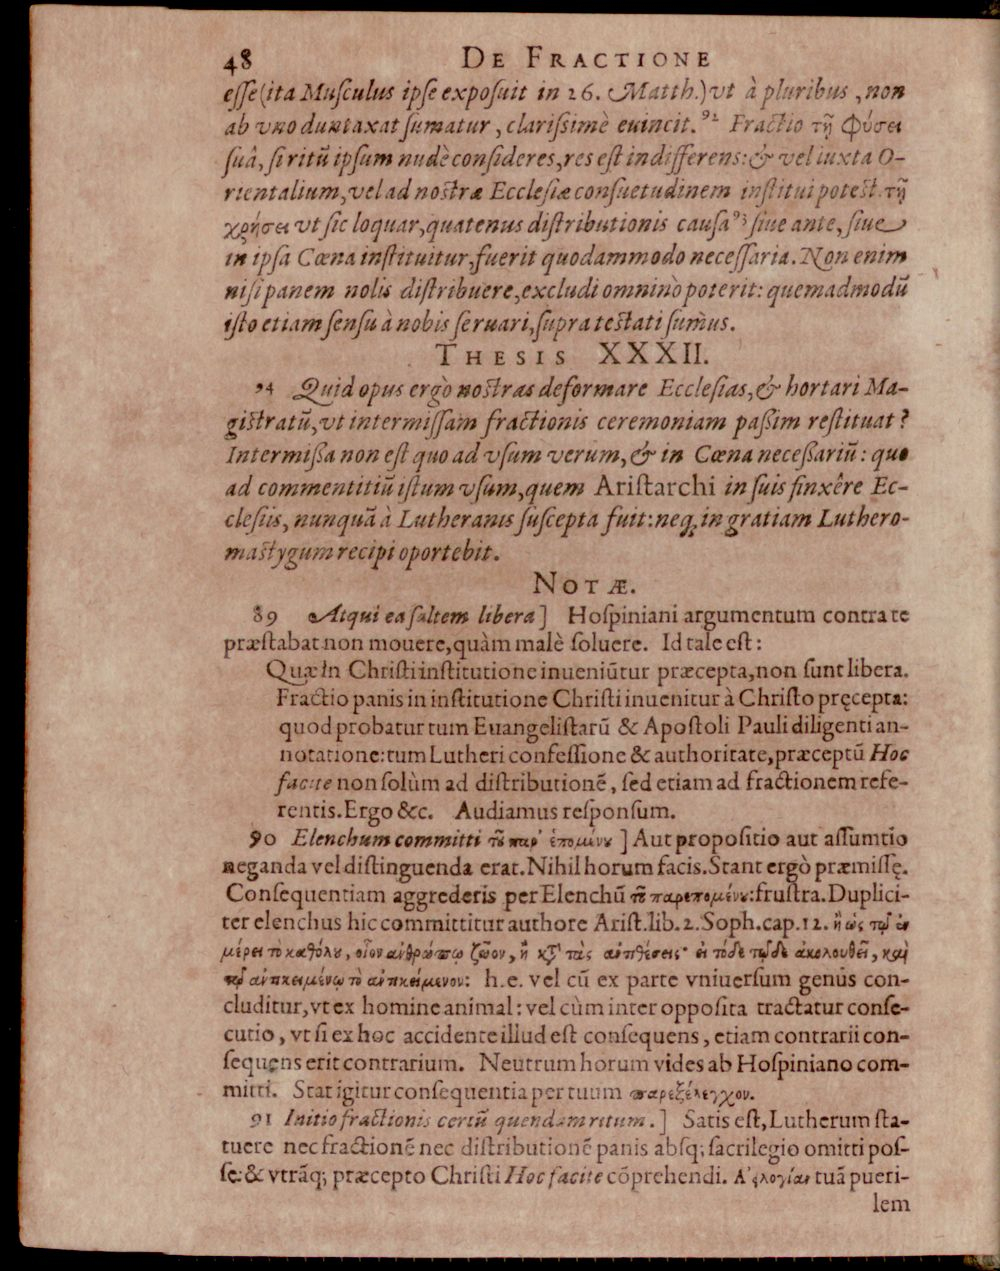 48 DE FRACTIONE
eſſe (ita Muſculus ipſe expoſuit in 26. Matth.) vt à pluribus, non
ab vno duntaxat ſumatur, clariſsimè euincit. 92 Fractio τῇ φύσει
ſuâ, ſi ritũ ipſum nudè conſideres, res eſt indifferens: & vel iuxta O-
rientalium, vel ad noſtræ Eccleſiæ conſuetudinem inſtitui poteſt. τῇ
χρήσει vt ſic loquar, quatenus diſtributionis cauſa 93 ſiue ante, ſiue
in ipſa Cœna inſtituitur, fuerit quodammodo neceſſaria. Non enim
niſi panem nolis diſtribuere, excludi omninò poterit: quemadmodũ
iſto etiam ſenſu à nobis ſeruari, ſupra teſtati ſumus.
THESIS XXXII.
94 Quid opus ergò noſtras deformare Eccleſias, & hortari Ma-
giſtratũ, vt intermiſſam fractionis ceremoniam paſsim reſtituat?
Intermiſſa non eſt quo ad vſum verum, & in Cœna neceſſariũ: quo
ad commentitiũ iſtum vſum, quem Ariſtarchi in ſuis finxêre Ec-
cleſiis, nunquã à Lutheranis ſuſcepta fuit: neq; in gratiam Luthero-
maſtygum recipi oportebit.
NOTÆ.
89 Atqui ea ſaltem libera] Hoſpiniani argumentum contra te
præſtabat non mouere, quàm malè ſoluere. Id tale eſt:
Quæ in Chriſti inſtitutione inueniũtur præcepta, non ſunt libera.
Fractio panis in inſtitutione Chriſti inuenitur à Chriſto pręcepta:
quod probatur tum Euangeliſtarũ & Apoſtoli Pauli diligenti an-
notatione: tum Lutheri confeſſione & authoritate, præceptũ Hoc
facite non ſolùm ad diſtributionẽ, ſed etiam ad fractionem refe-
rentis. Ergo &c. Audiamus reſponſum.
90 Elenchum committi τοῦ παρ’ ἑπομένου] Aut propoſitio aut aſſumtio
neganda vel diſtinguenda erat. Nihil horum facis. Stant ergò præmiſſę.
Conſequentiam aggrederis per Elenchũ τοῦ παρεπομένου: fruſtra. Duplici-
ter elenchus hic committitur authore Ariſt. lib. 2. Soph. cap. 12. ἢ ὡς τῷ ἐν
μέρει τὸ καθόλου, οἷον ἀνθρώπῳ ζῶον, ἢ κατὰ τὰς ἀντιθέσεις· εἰ τόδε τῷδε ἀκολουθεῖ, καὶ
τῷ ἀντικειμένῳ τὸ ἀντικείμενον: h.e. vel cũ ex parte vniuerſum genus con-
cluditur, vt ex homine animal: vel cùm inter oppoſita tractatur conſe-
cutio, vt ſi ex hoc accidente illud eſt conſequens, etiam contrarii con-
ſequens erit contrarium. Neutrum horum vides ab Hoſpiniano com-
mitti. Stat igitur conſequentia per tuum παρεξέλεγχον.
91 Initio fractionis certũ quendam ritum.] Satis eſt, Lutherum ſta-
tuere nec fractionẽ nec diſtributionẽ panis abſq; ſacrilegio omitti poſ-
ſe: & vtrãq; præcepto Chriſti Hoc facite cõprehendi. tuã pueri-
lem